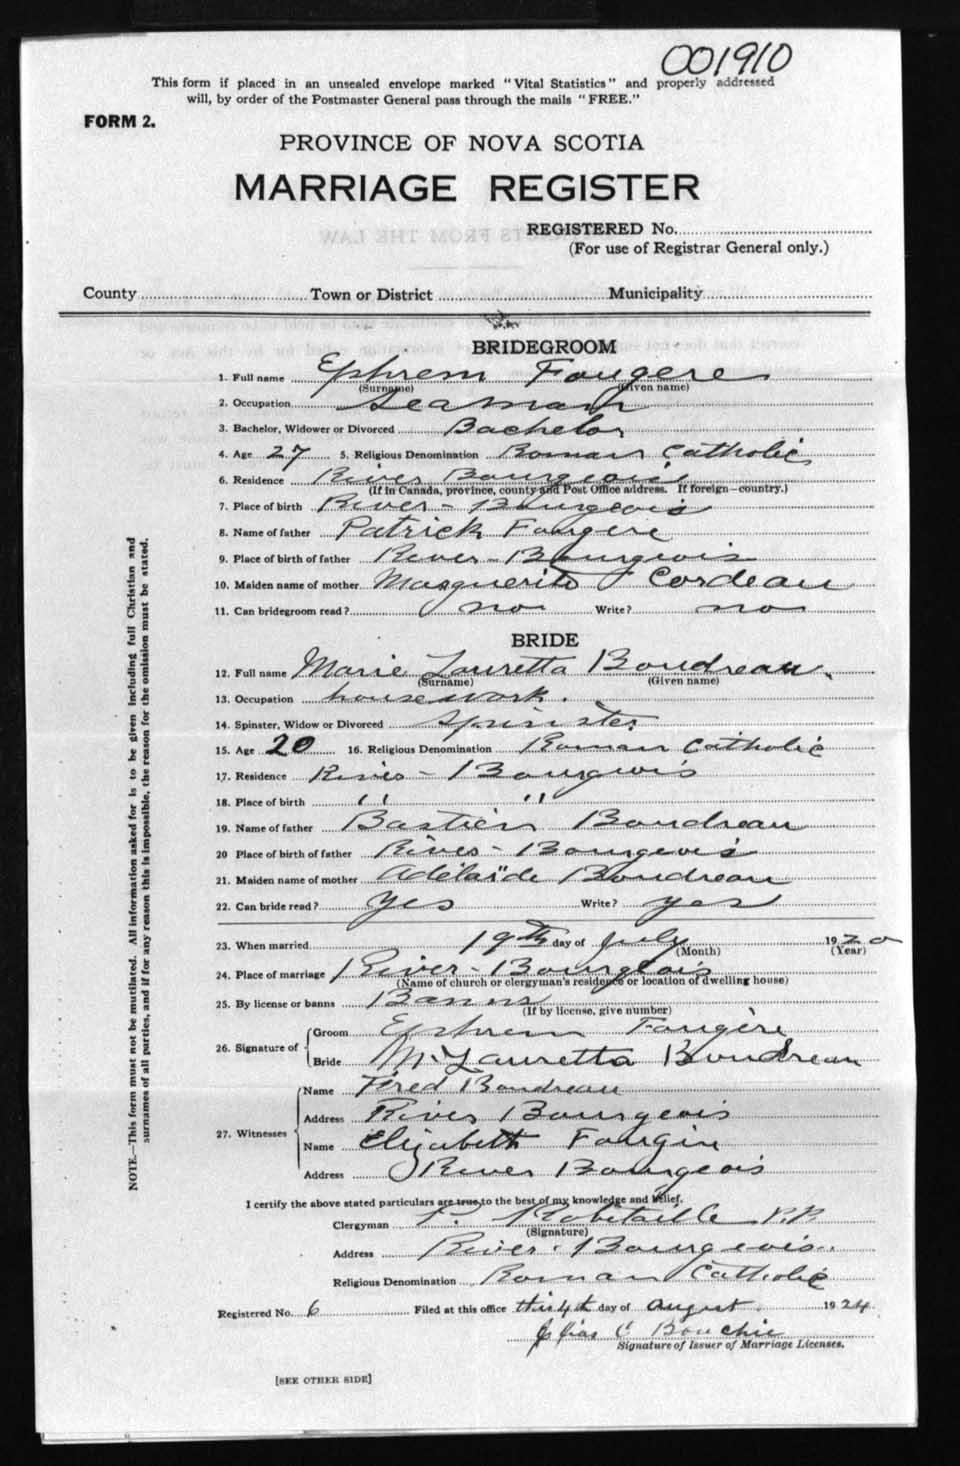 001910
This form if placed in an unsealed envelope marked "Vital Statistics" and properly addressed
will, by order of the Postmaster General pass through the mails "FREE."
FORM 2.
PROVINCE OF NOVA SCOTIA
MARRIAGE REGISTER
REGISTERED No.
(For use of Registrar General only.)
County Town or District Municipality
BRIDEGROOM
1. Full name Ephrem Fougere
(Surname) (Given name)
2. Occupation Seaman
3. Bachelor, Widower or Divorced Bachelor
4. Age 27 5. Religious Denomination Roman Catholic
6. Residence River Bourgeois
(If in Canada, province, county and Post Office address. If foreign—country.)
7. Place of birth River-Bourgeois
8. Name of father Patrick Fougere
9. Place of birth of father River-Bourgeois
10. Maiden name of mother Marguerite Cordeau
11. Can bridegroom read? no Write? no
BRIDE
12. Full name Marie Lauretta Boudreau
(Surname) (Given name)
13. Occupation housework.
14. Spinster, Widow or Divorced Spinster
15. Age 20 16. Religious Denomination Roman Catholic
17. Residence River-Bourgeois
18. Place of birth " "
19. Name of father Bastien Boudreau
20 Place of birth of father River-Bourgeois
21. Maiden name of mother Adélaïde Boudreau
22. Can bride read? yes Write? yes
23. When married 19th day of July 1920
(Month) (Year)
24. Place of marriage River-Bourgeois
(Name of church or clergyman's residence or location of dwelling house)
25. By license or banns Banns
(If by license, give number)
26. Signature of Groom Ephrem Fougère
Bride M. Lauretta Boudreau
27. Witnesses Name Fred Boudreau
Address River Bourgeois
Name Elizabeth Fougere
Address River Bourgeois
I certify the above stated particulars are true to the best of my knowledge and belief.
Clergyman P. Robitaille P.P.
(Signature)
Address River-Bourgeois.
Religious Denomination Roman Catholic
Registered No. 6 Filed at this office this 4th day of August 1924
Elias C Bouchie
Signature of Issuer of Marriage Licenses.
[SEE OTHER SIDE]
NOTE.—This form must not be mutilated. All information asked for is to be given including full Christian and
surnames of all parties, and if for any reason this is impossible, the reason for the omission must be stated.